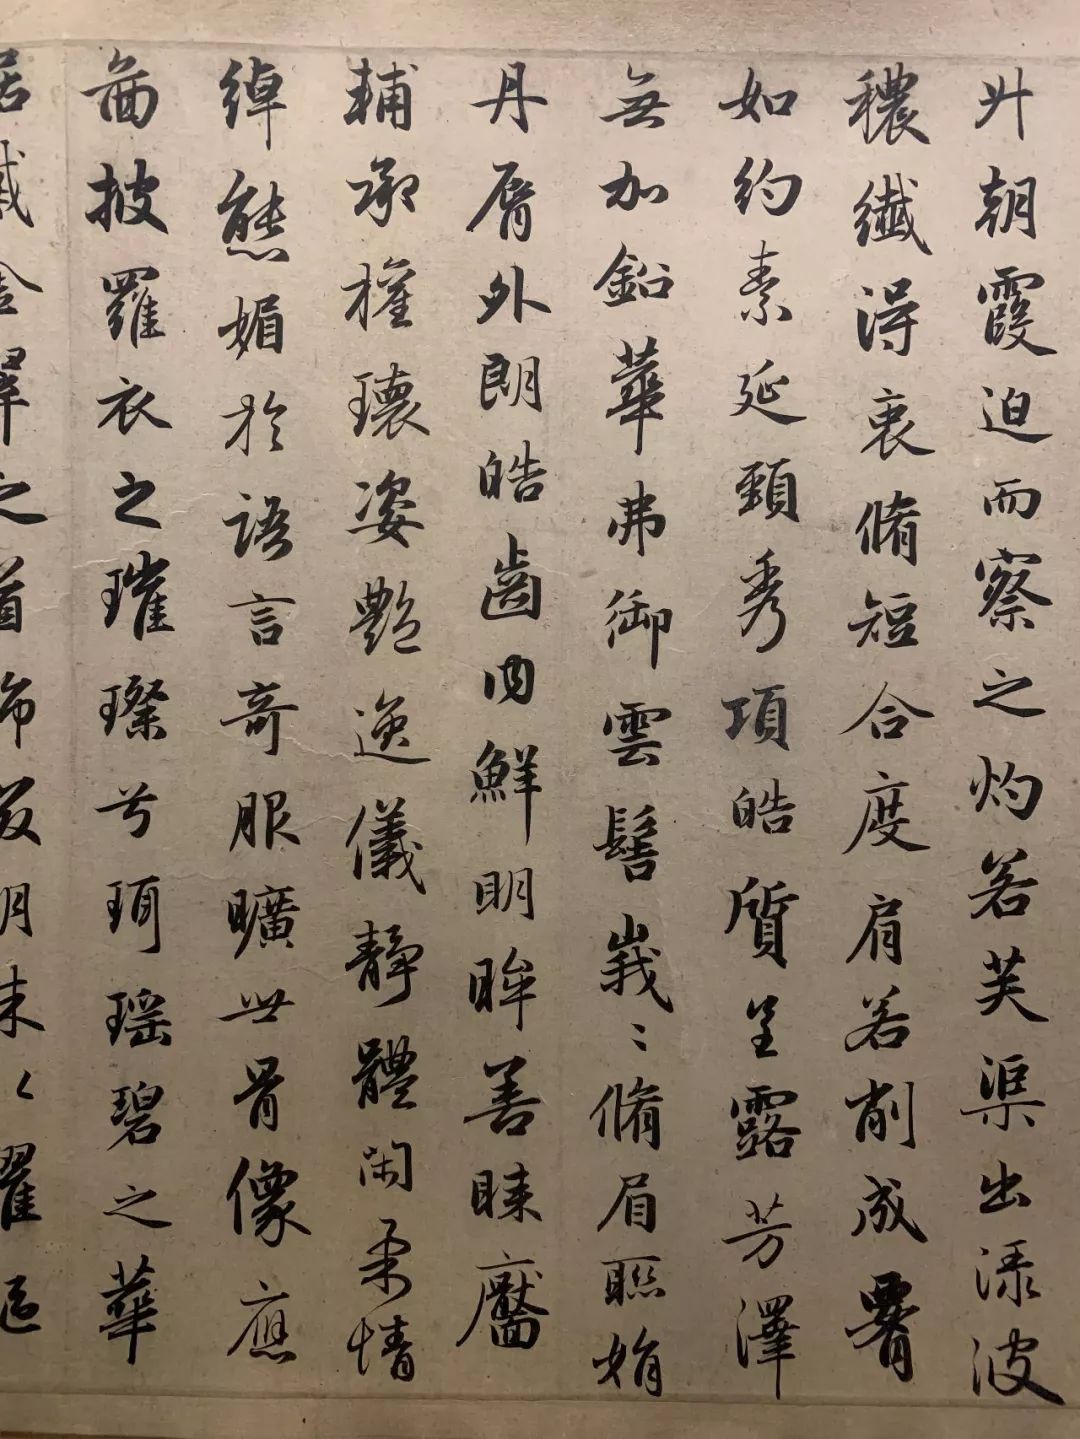 升朝霞迫而察之灼若芙渠出淥波
穠纖得衷脩短合度肩若削成署
如約素延頸秀項皓質呈露芳澤
無加鉛華弗御雲髻峩〻脩眉聮娟
丹脣外朗皓齒内鮮明眸善睞靨
輔承權瓌姿艶逸儀靜體閑柔情
綽態媚於語言奇服曠世骨像應
啚披羅衣之璀璨兮珥瑶碧之華